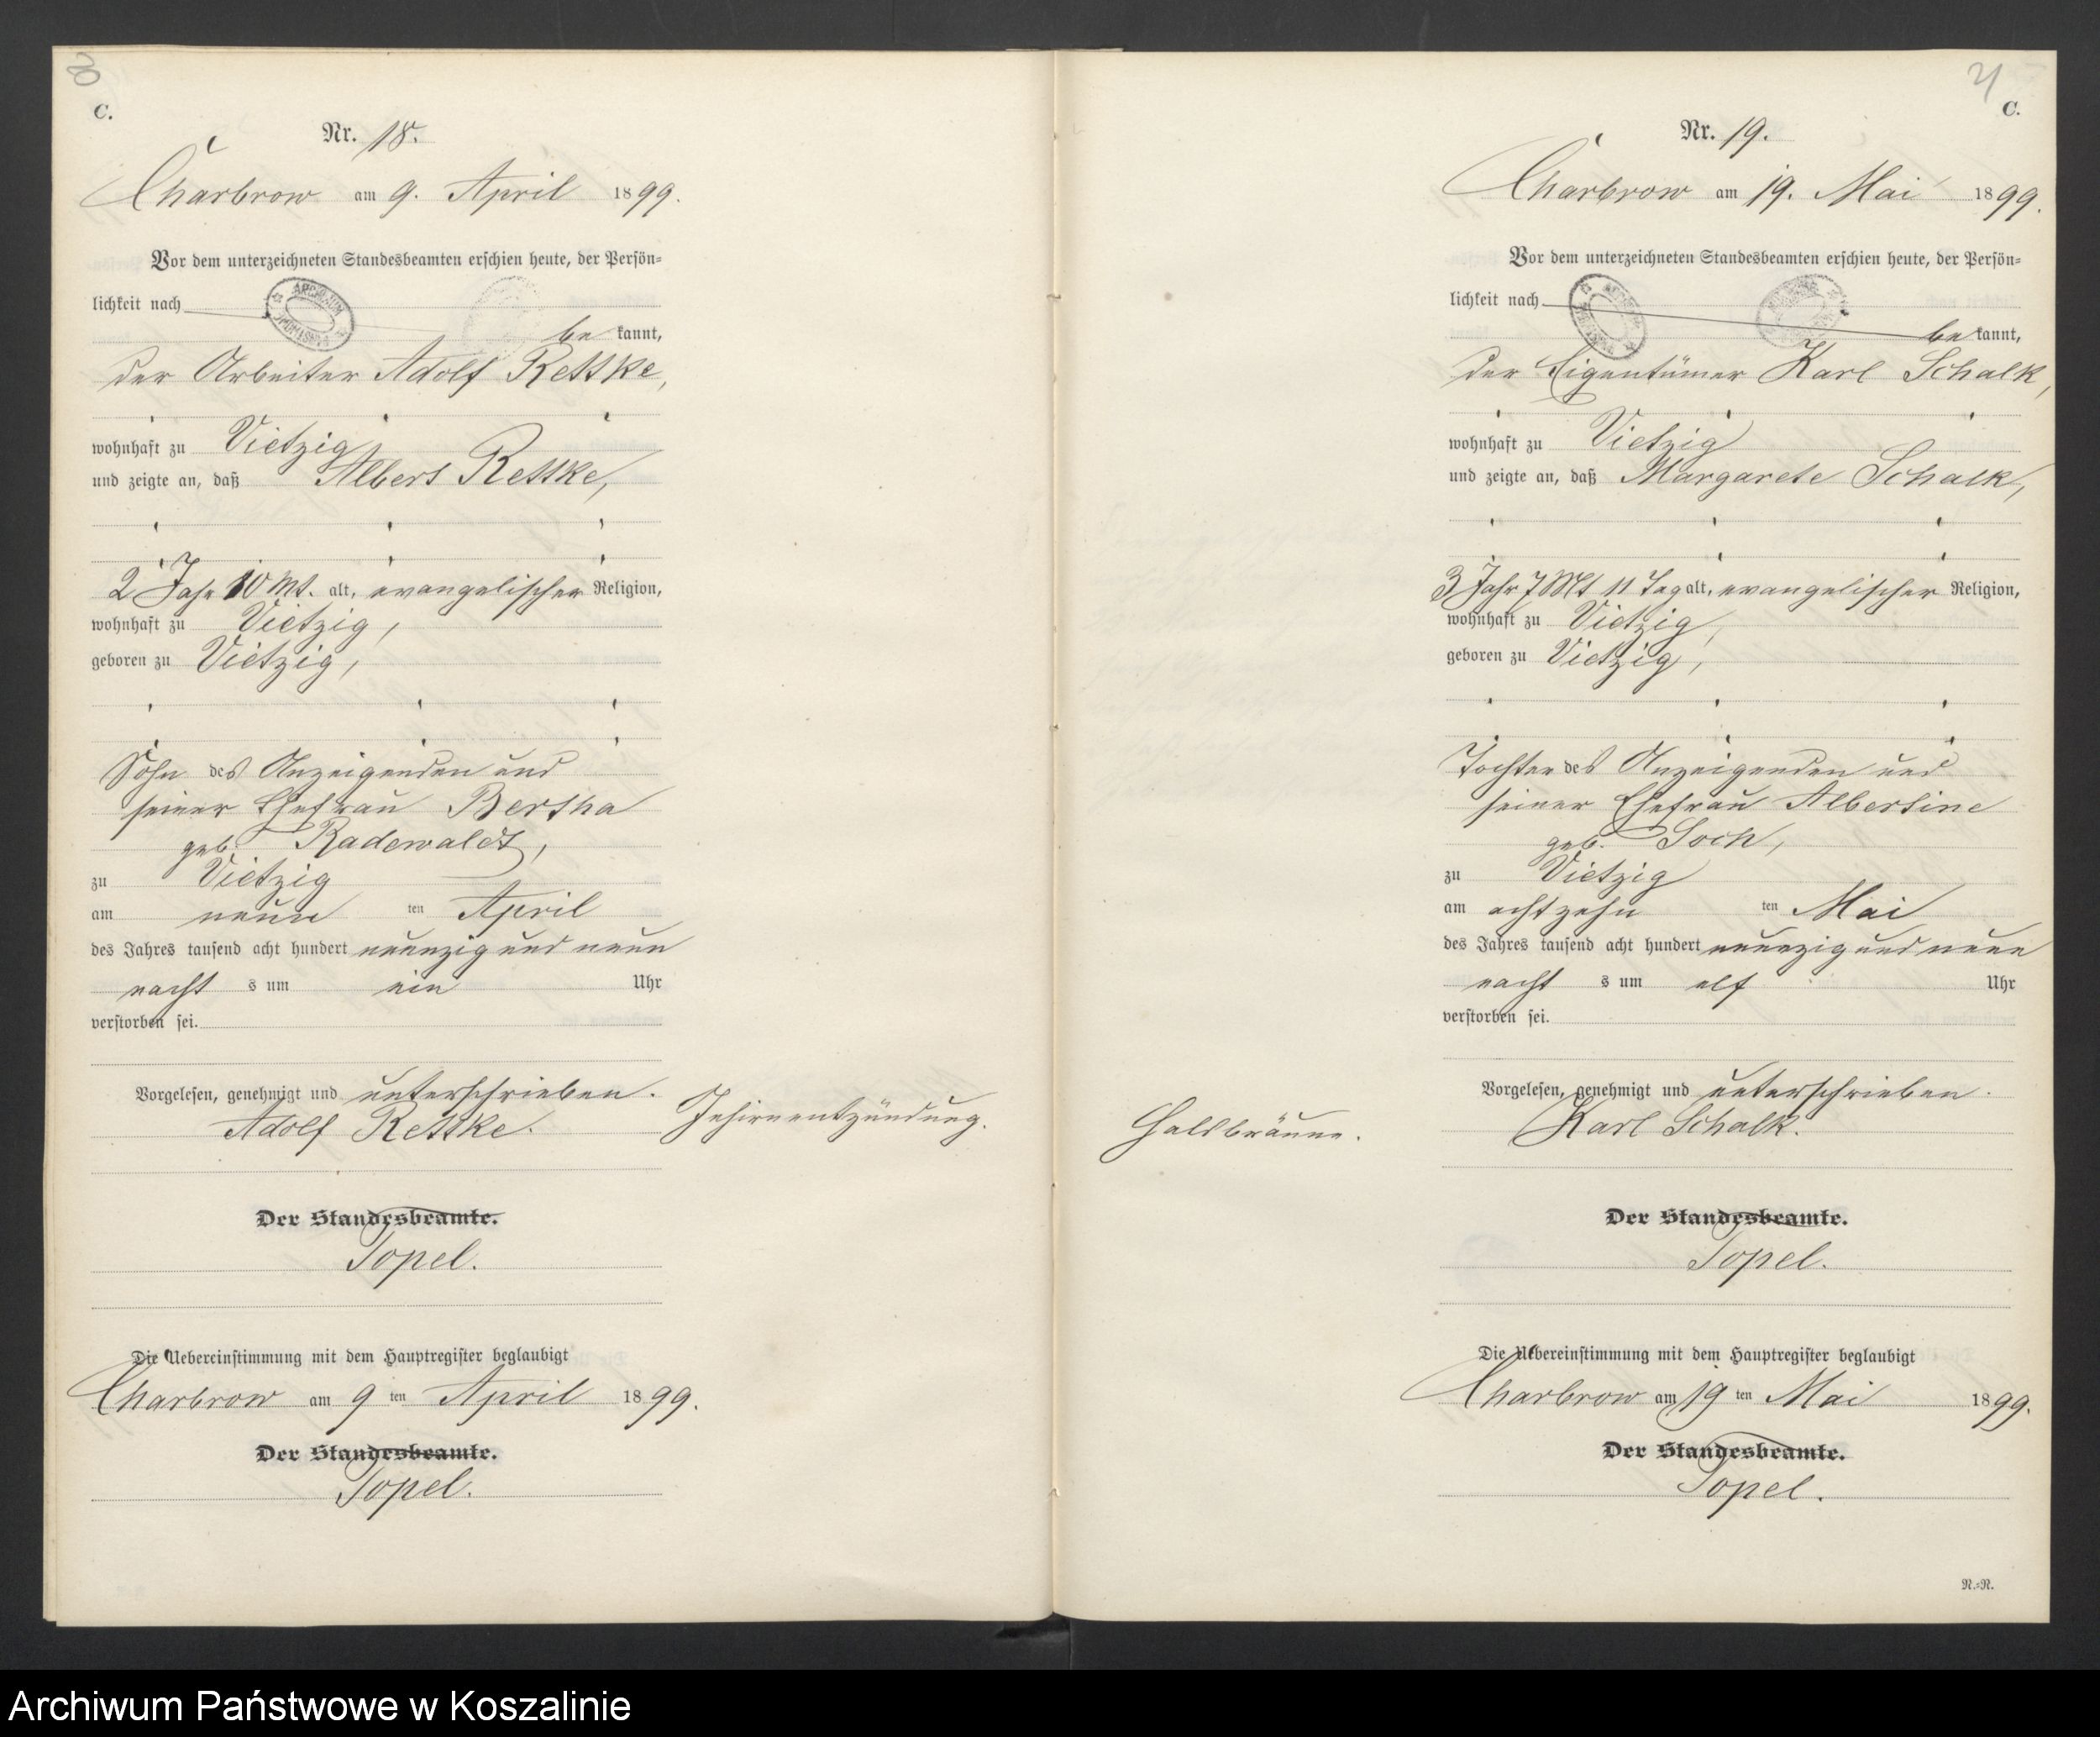 C.
Nr. 18.
Charbrow am 9. April 1899.
Vor dem unterzeichneten Standesbeamten erschien heute, der Persön=
lichkeit nach
be kannt,
der Arbeiter Adolf Rettke,
wohnhaft zu Vietzig
und zeigte an, daß Albert Rettke,
2 Jahr 10 Mt. alt, evangelischer Religion,
wohnhaft zu Vietzig,
geboren zu Vietzig,
Sohn des Anzeigenden und
seiner Ehefrau Bertha
geb. Radewaldt,
zu Vietzig
am neun ten April
des Jahres tausend acht hundert neunzig und neun
nacht s um ein Uhr
verstorben sei.
Vorgelesen, genehmigt und unterschrieben.
Adolf Rettke.
Gehirnentzündung.
Der Standesbeamte.
Topel.
Die Uebereinstimmung mit dem Hauptregister beglaubigt
Charbrow am 9 ten April 1899.
Der Standesbeamte.
Topel.
21
C.
Nr. 19.
Charbrow am 19. Mai 1899.
Vor dem unterzeichneten Standesbeamten erschien heute, der Persön=
lichkeit nach
be kannt,
der Eigentümer Karl Schalk,
wohnhaft zu Vietzig
und zeigte an, daß Margarete Schalk,
3 Jahr 7 Mt 11 Tag alt, evangelischer Religion,
wohnhaft zu Vietzig,
geboren zu Vietzig,
Tochter des Anzeigenden und
seiner Ehefrau Albertine
geb. Soch,
zu Vietzig
am achtzehn ten Mai
des Jahres tausend acht hundert neunzig und neun
nacht s um elf Uhr
verstorben sei.
Vorgelesen, genehmigt und unterschrieben.
Karl Schalk.
Halsbräune.
Der Standesbeamte.
Topel.
Die Uebereinstimmung mit dem Hauptregister beglaubigt
Charbrow am 19 ten Mai 1899.
Der Standesbeamte.
Topel.
N.=N.
Archiwum Państwowe w Koszalinie